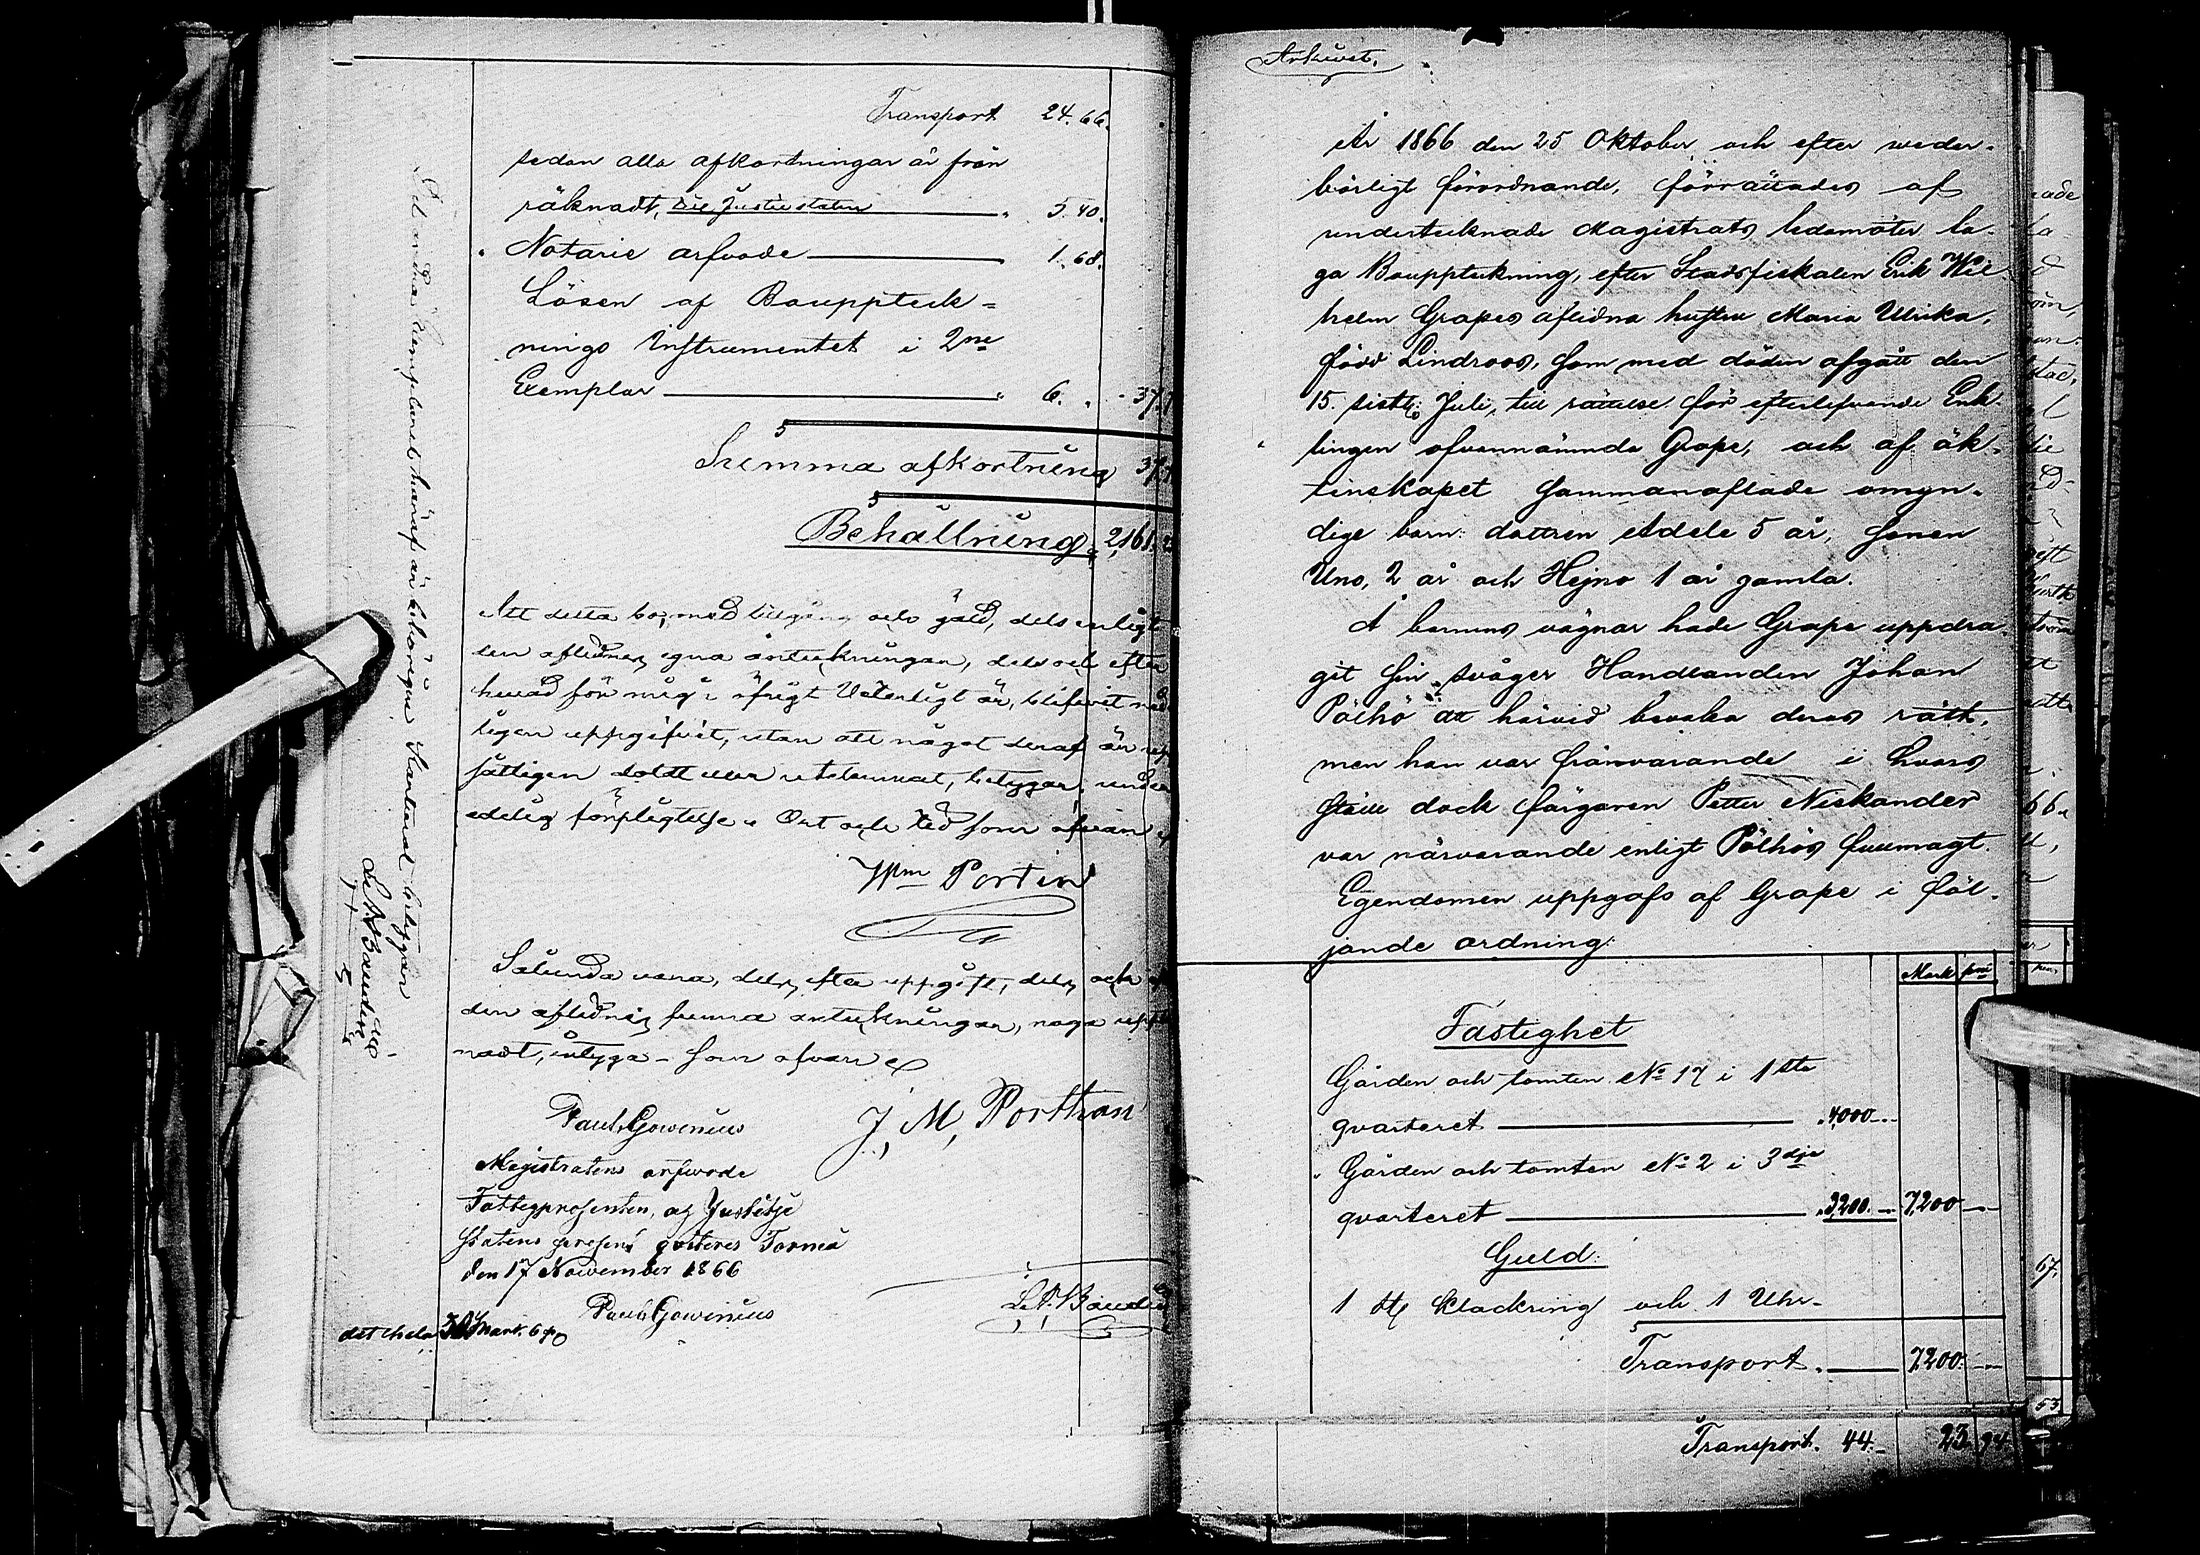 Transport 24.66.
sedan alla afkortningar är från
räknadt, till Justitiestaten " 5.40.
" Notarie arfvode 1.68.
Lösen af Boupptek=
nings Instrumentet i 2ne
Exemplar " 6. " - 37.
Summa afkortning 37.
Behållning 2,161.
Att detta bo, med tillgång och gäld, dels enligt
den aflidnes egna anteckningar, dels och efter
hvad för mig i öfrigt veterligt är, blifvit red
ligen uppgifvit, utan att något deraf är upp
såtligen doldt eller utelemnat, betygar, under
edelig förpligtelse. Ort och tid som ofvan
Wm Portin
Sålunda vara, dels efter uppgift, dels och
den aflidnes funna anteckningar, noga upp
nadt, intyga – som ofvan
Paul Gowenius J. M. Porthan
Magistratens arfvode
Fattigprosenten, og Justitje
Statens prosent qvitteres Torneå
den 17 November 1866
Paul Gowenius
det hela 30 Mark. 6 p
Exemplaret häraf är behörigen Karteradt betygar
Arkivet.
År 1866 den 25 Oktober och efter weder-
börligt förordnande, förrättades af
undertecknade Magistrats ledamöter la-
ga Bouppteckning, efter Stadsfiskalen Erik Wil
helm Grapes aflidna hustru Maria Ulrika,
född Lindroos, som med döden afgått den
15. sistl. Juli, till rättelse för efterlefvande Enk-
lingen ofvannämnda Grape, och af äk-
tenskapet sammanaflade omyn-
dige barn: dottren Adele 5 år, sonen
Uno, 2 år och Hejno 1 år gamla.
Å barnens vägnar hade Grape uppdra-
git sin svåger Handlanden Johan
Pölhö att härvid bevaka deras rätt,
men han var frånvarande i hvars
ställe dock färgaren Petter Niskander
var närvarande enligt Pölhös fullmagt.
Egendomen uppgafs af Grape i föl-
jande ordning:
Mark pni
Fastighet
Gården och tomten No 17 i 1sta
qvarteret .4,000.-
" Gården och tomten No 2 i 3dje
qvarteret .3,200.- 7,200 -
Guld.
1 st klackring och 1 Uhr-
Transport. 7,200. -
Transport. 44.- 23. 94.